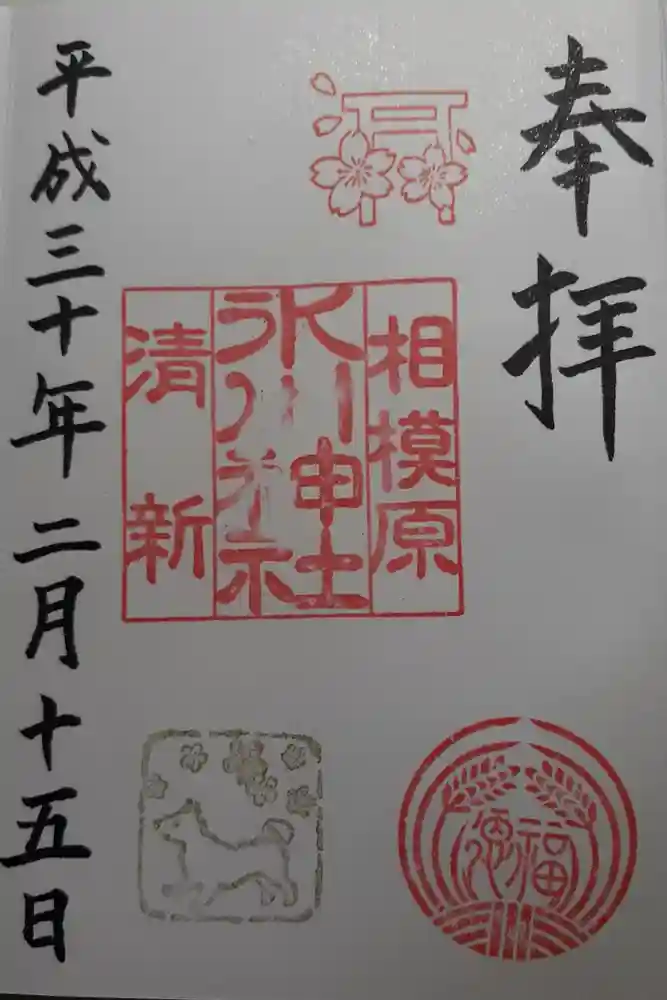 奉拝
相模原
氷川神社
清新
福徳
平成三十年二月十五日